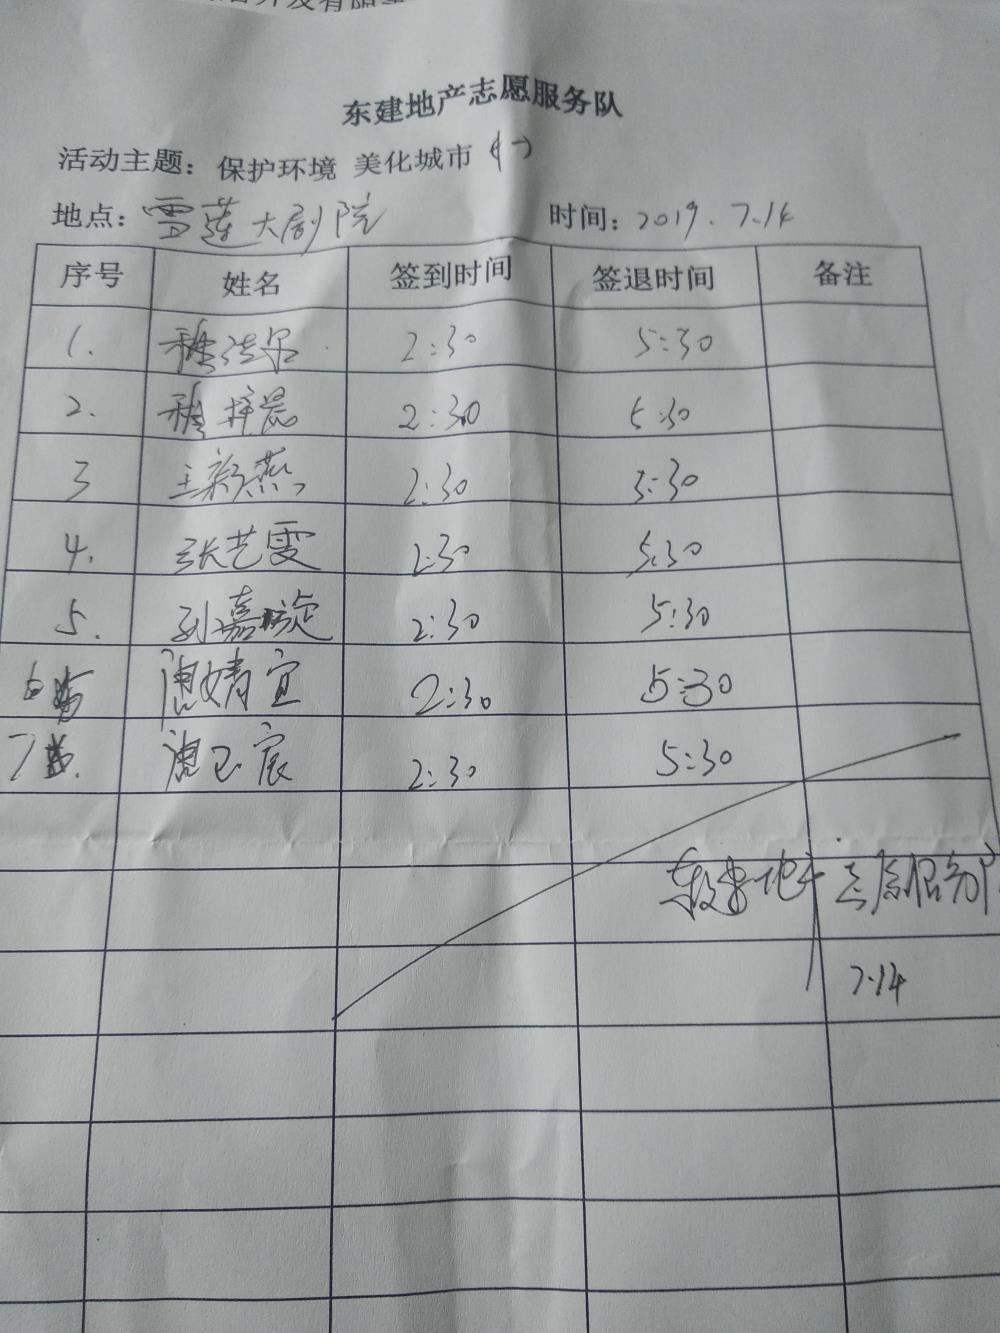 东建地产志愿服务队
活动主题：保护环境 美化城市（一）
地点：雪莲大剧院 时间：2019.7.14
序号 姓名 签到时间 签退时间 备注
1. 2:30 5:30
2. 穆择晨 2:30 5:30
3 王新燕 2:30 5:30
4. 张艺雯 2:30 5:30
5. 孙嘉璇 2:30 5:30
6 唐婧宜 2:30 5:30
7 唐卫宸 2:30 5:30
志愿服务队
7.14